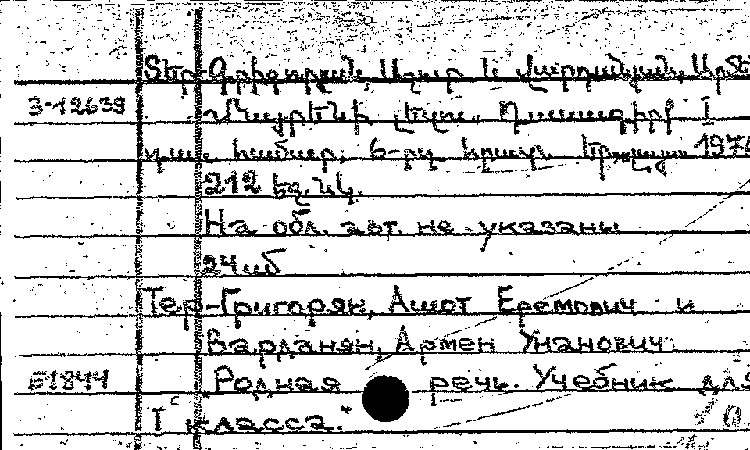 Տեր-Գրիգորյան, Աշոտ և Վարդանյան, Ար
3-12639 Մայրենի լեզու. Դասագիրք I
դաս. համար. 6-րդ հրատ. Երևան, 197
212 եջ, նկ.
На обл. авт. не указаны
24
Тер-Григорян, Ашот Еремович и
Варданян, Армен Унанович
Б1844 Родная речь. Учебник для
I класса.*